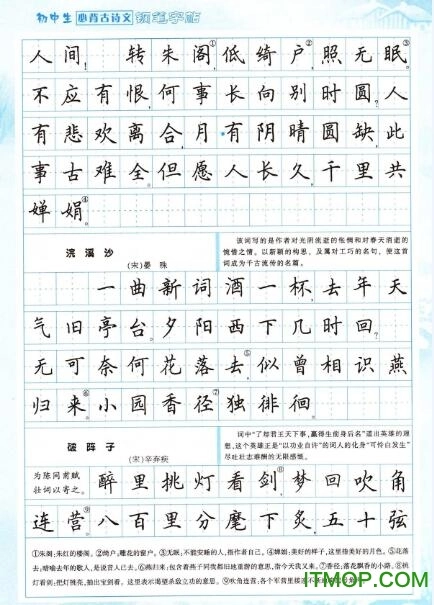 初中生 必背古诗文 钢笔字帖
人间！ 转朱阁①，低绮户②，照无眠③。
不应有恨，何事长向别时圆？人
有悲欢离合，月有阴晴圆缺，此
事古难全。但愿人长久，千里共
婵娟④。
浣溪沙
（宋）晏 殊
该词写的是作者对光阴流逝的怅惘和对春天消逝的
惋惜之情。以新颖的构思，及属对工巧的名句，使这首
词成为千古流传的名篇。
一曲新词酒一杯，去年天
气旧亭台。夕阳西下几时回？
无可奈何花落去⑤，似曾相识燕
归来⑥。小园香径⑦独徘徊。
破阵子
（宋）辛弃疾
词中“了却君王天下事，赢得生前身后名”道出英雄的理
想，这个英雄正是“以功业自许”的词人的化身“可怜白发生”
尽吐壮志难酬的无限感慨。
为陈同甫赋
壮词以寄之。
醉里挑灯看剑⑧，梦回吹角
连营⑨。八百里分麾下炙，五十弦
①朱阁：朱红的楼阁。②绮户：雕花的窗户。③无眠：不能安睡的人，指作者自己。④婵娟：美好的样子，这里指美好的月色。⑤花落
去：暗喻去年的歌人，是说昔人已去。⑥燕归来：包含着燕子同我都旧地重游的意思，指今天我又来了。⑦香径：落花飘香的小路。⑧挑
灯看剑：把灯挑亮，抽出宝剑看。这里表示渴望杀敌立功的意思。⑨吹角连营：各个军营里接连不断
ITMOP.COM